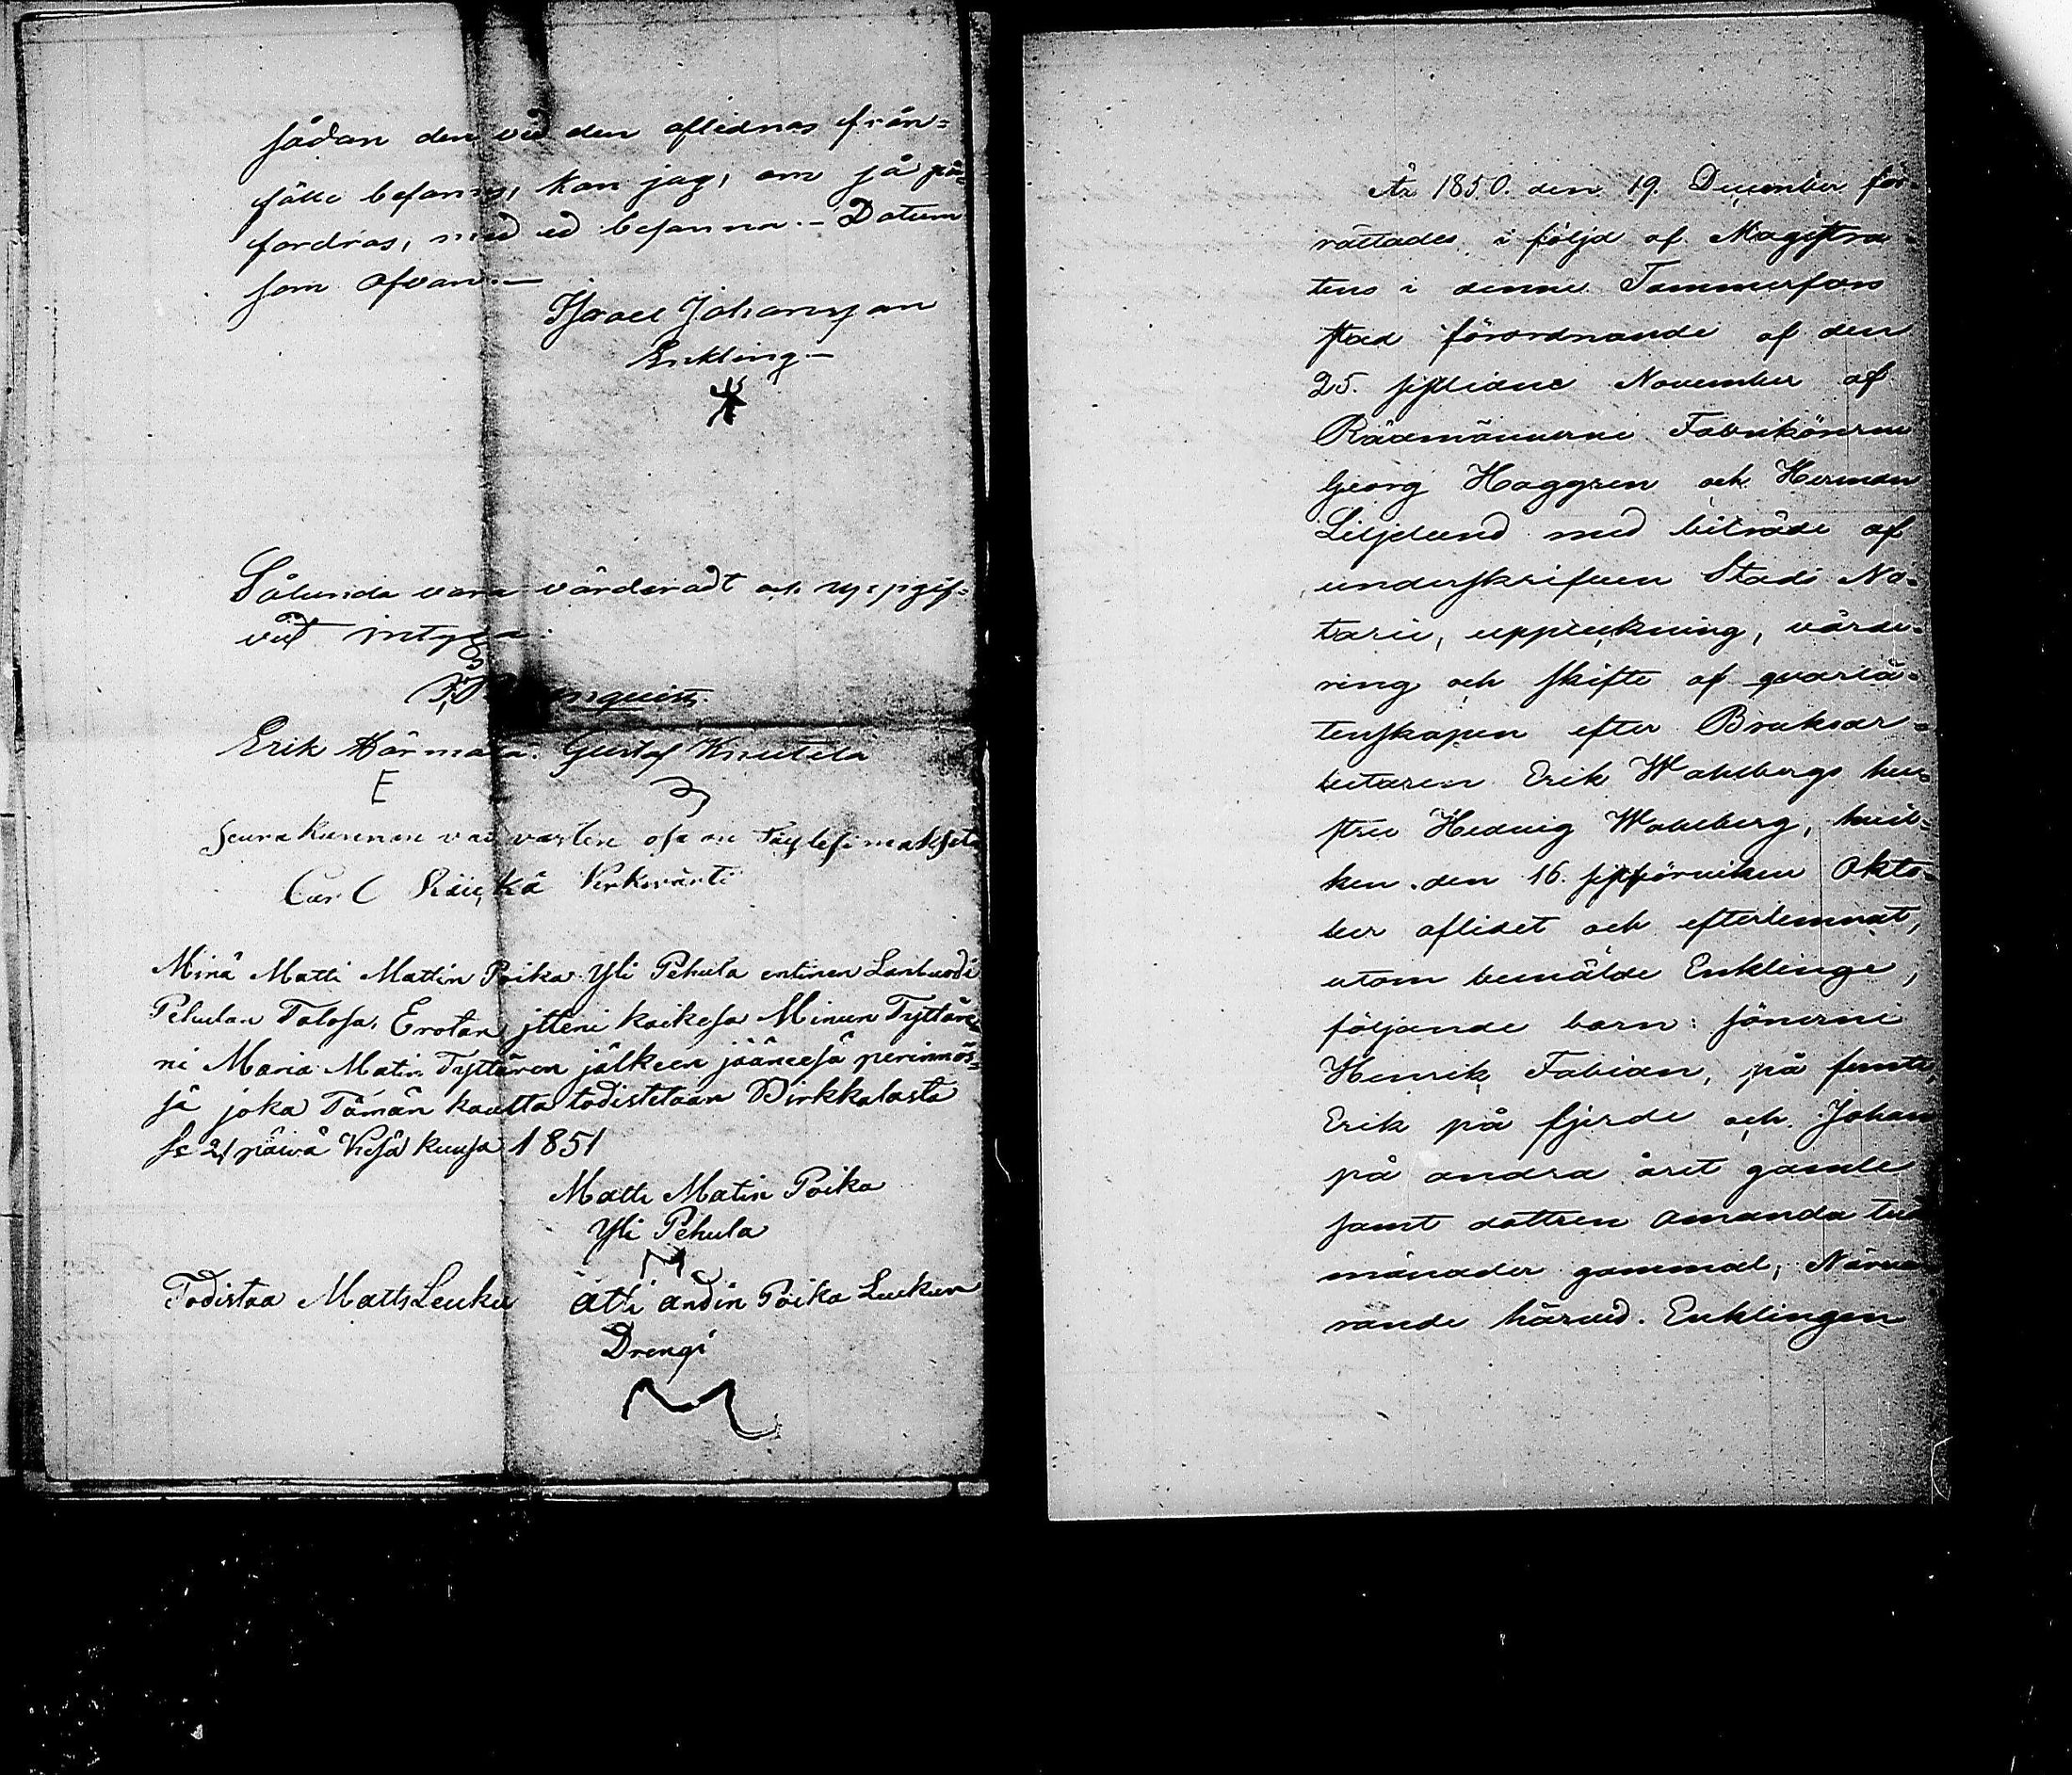 sådan den vid den aflidnas från-
fälle befanns, kan jag, om så på-
fordras, med ed besanna. – Datum
som ofvan. –
Israel Johansson
Enkling –
Sålunda vara värderadt och uppgif-
vit intyga.
Erik Härmälä. Gustaf Knuutila
E
Seurakunnan vaivasten osa on maksettu
Carl Kirkwärti
Minä Matti Mattin Poika Yli Pehula entinen Lanbuodi
Pehulan Talosa, Erotan jtteni kaikesa Minun Tyttäre-
ni Maria Matin Tyttären jälkeen jääneesä perinnös-
sä joka Tämän kautta todistetaan Birkkalasta
se 21 päivä Kesä kuusa 1851
Matti Matin Poika
Yli Pehula
Todistaa Matts Leuku Atti andin Poika Leukun
Drengi
År 1850. den 19. December för-
rättades i följd af Magistra-
tens i denne Tammerfors
stad förordnande af den
25. sistlidne November af
Rådmännerne Fabrikörerne
Georg Haggren och Herman
Liljelund med biträde af
underskrifven Stads No-
tarie, uppteckning, värde-
ring och skifte af qvarlå-
tenskapen efter Bruksar-
betaren Erik Wahlbergs hu-
stru Hedvig Wahlberg, hvil-
ken den 16. sistförvikne Okto-
ber aflidet och efterlemnat,
utom bemälde Enklinge,
följande barn: sönerne
Henrik Fabian, på femte,
Erik på fjerde och Johan
på andra året gamle
samt dottren Amanda två
månader gammal; Närva-
rande härvid. Enklingen